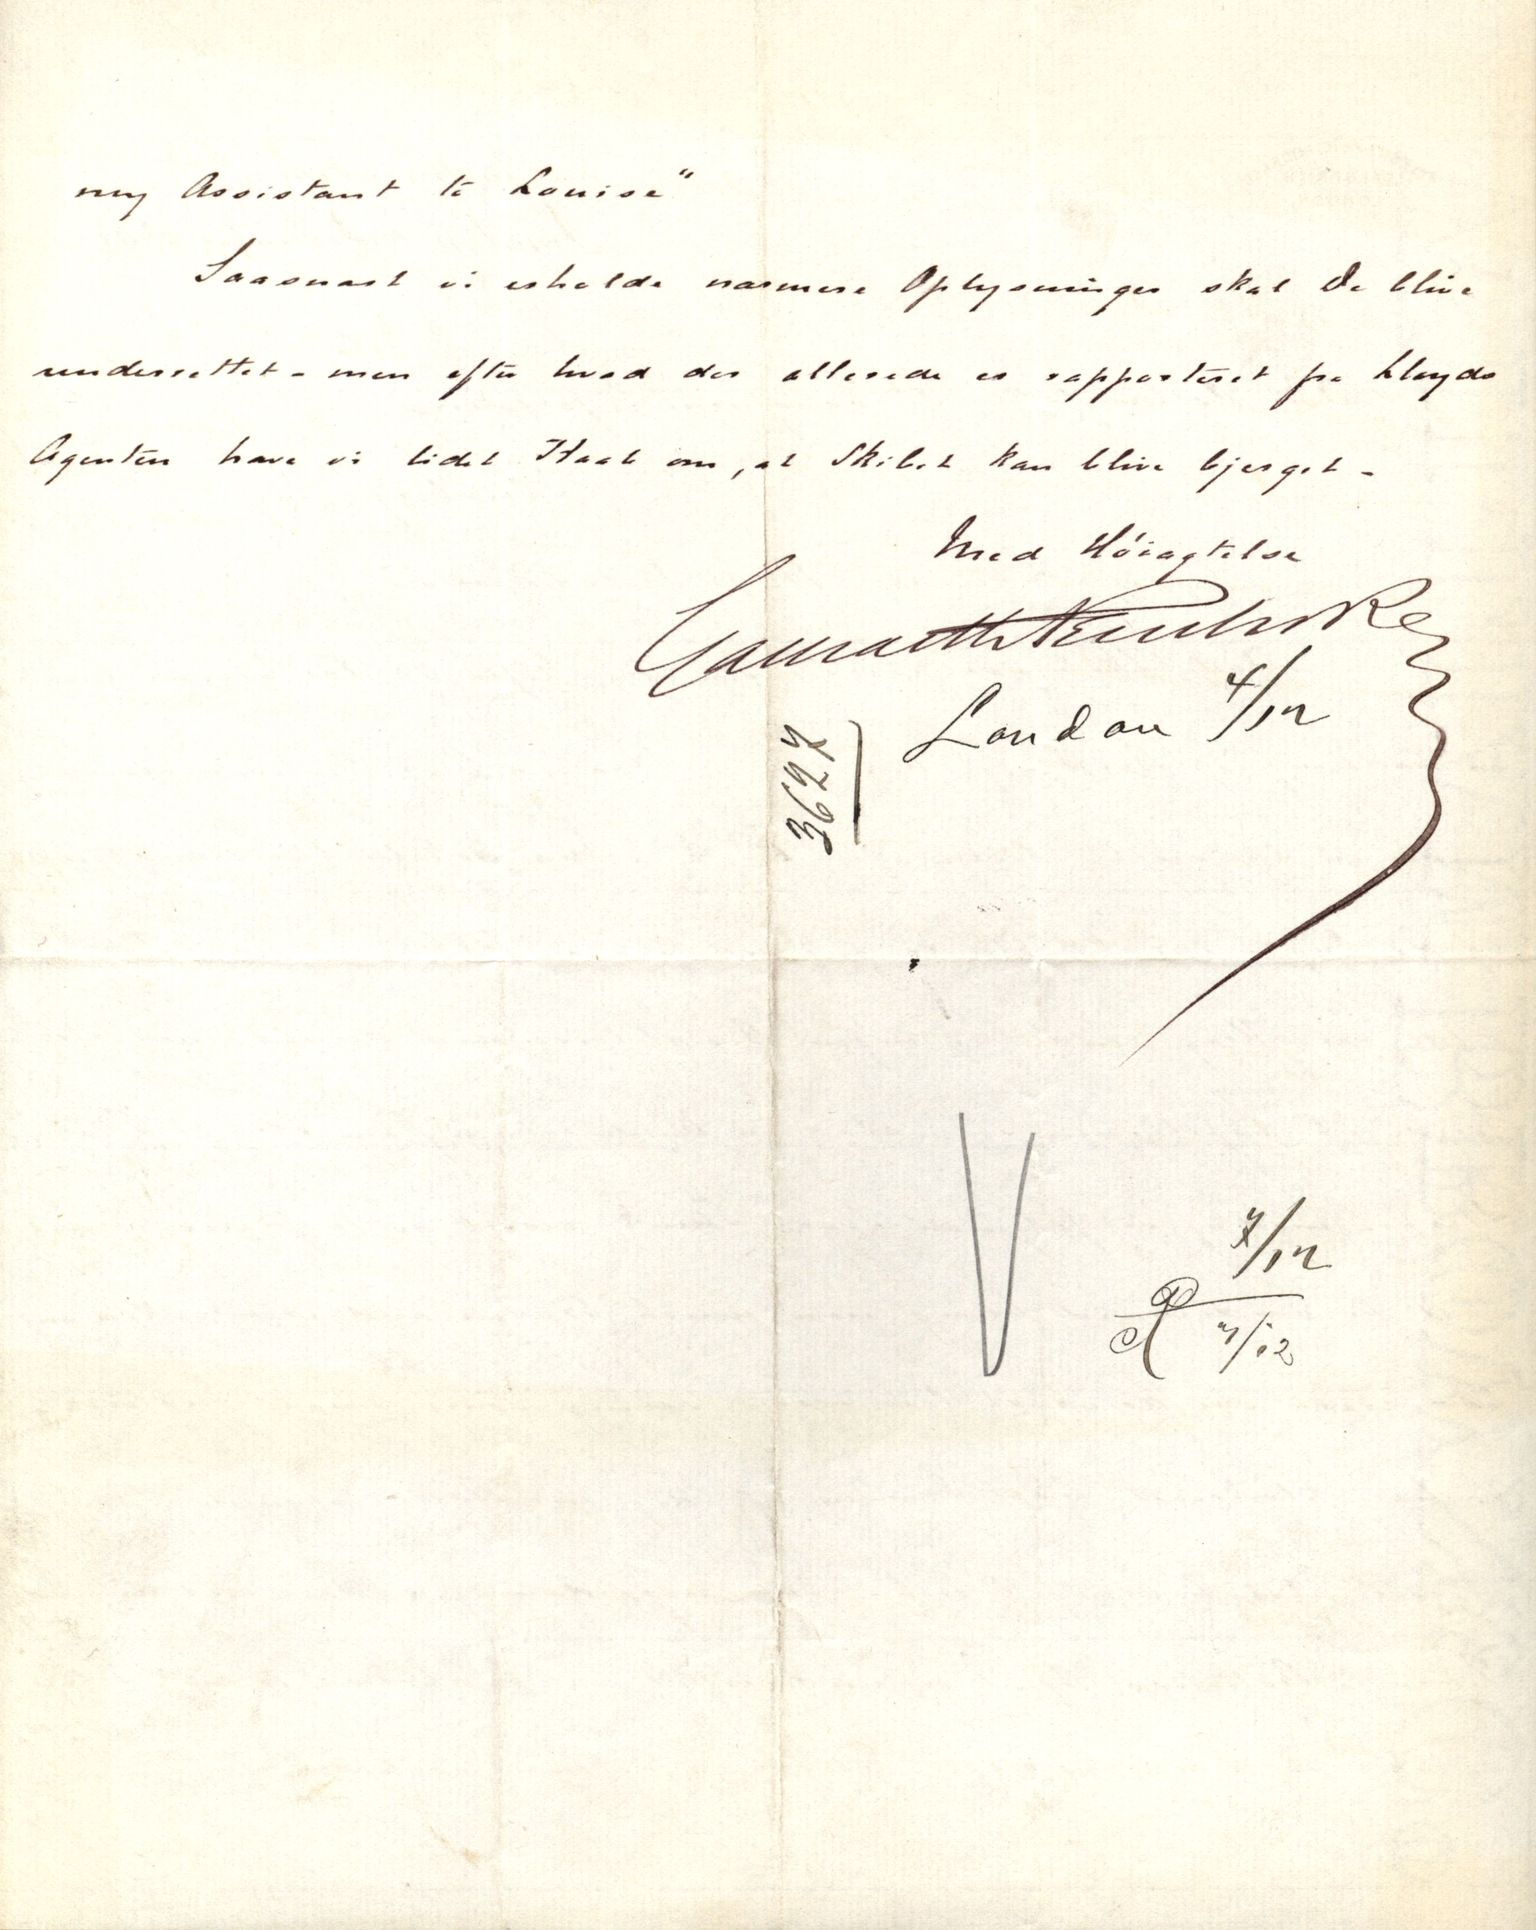 my Assistant to Louise"
Saasnart vi erholde nærmere Oplysninger skal De blive
underrettet - men efter hvad der allerede er rapporteret fra Lloyds
Agenten have vi lidet Haab om, at Skibet kan blive bjerget -
Med Höiagtelse
London 4/12
3627
7/12
7/12